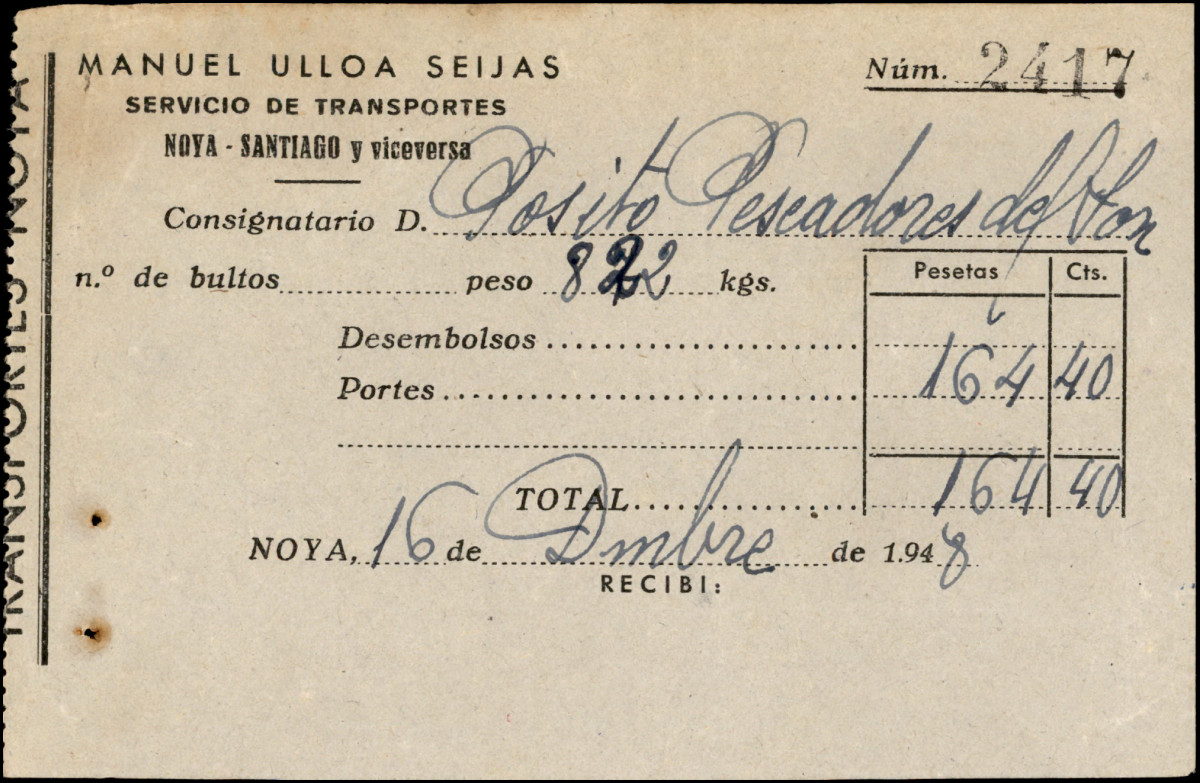 MANUEL ULLOA SEIJAS
SERVICIO DE TRANSPORTES
NOYA - SANTIAGO y viceversa
Núm. 2417
Consignatario D. Posito Pescadores de Son
n.º de bultos peso 822 kgs.
Pesetas Cts.
Desembolsos
Portes 164 40
TOTAL 164 40
NOYA, 16 de Dmbre de 1.948
RECIBI:
TRANSPORTES NOYA